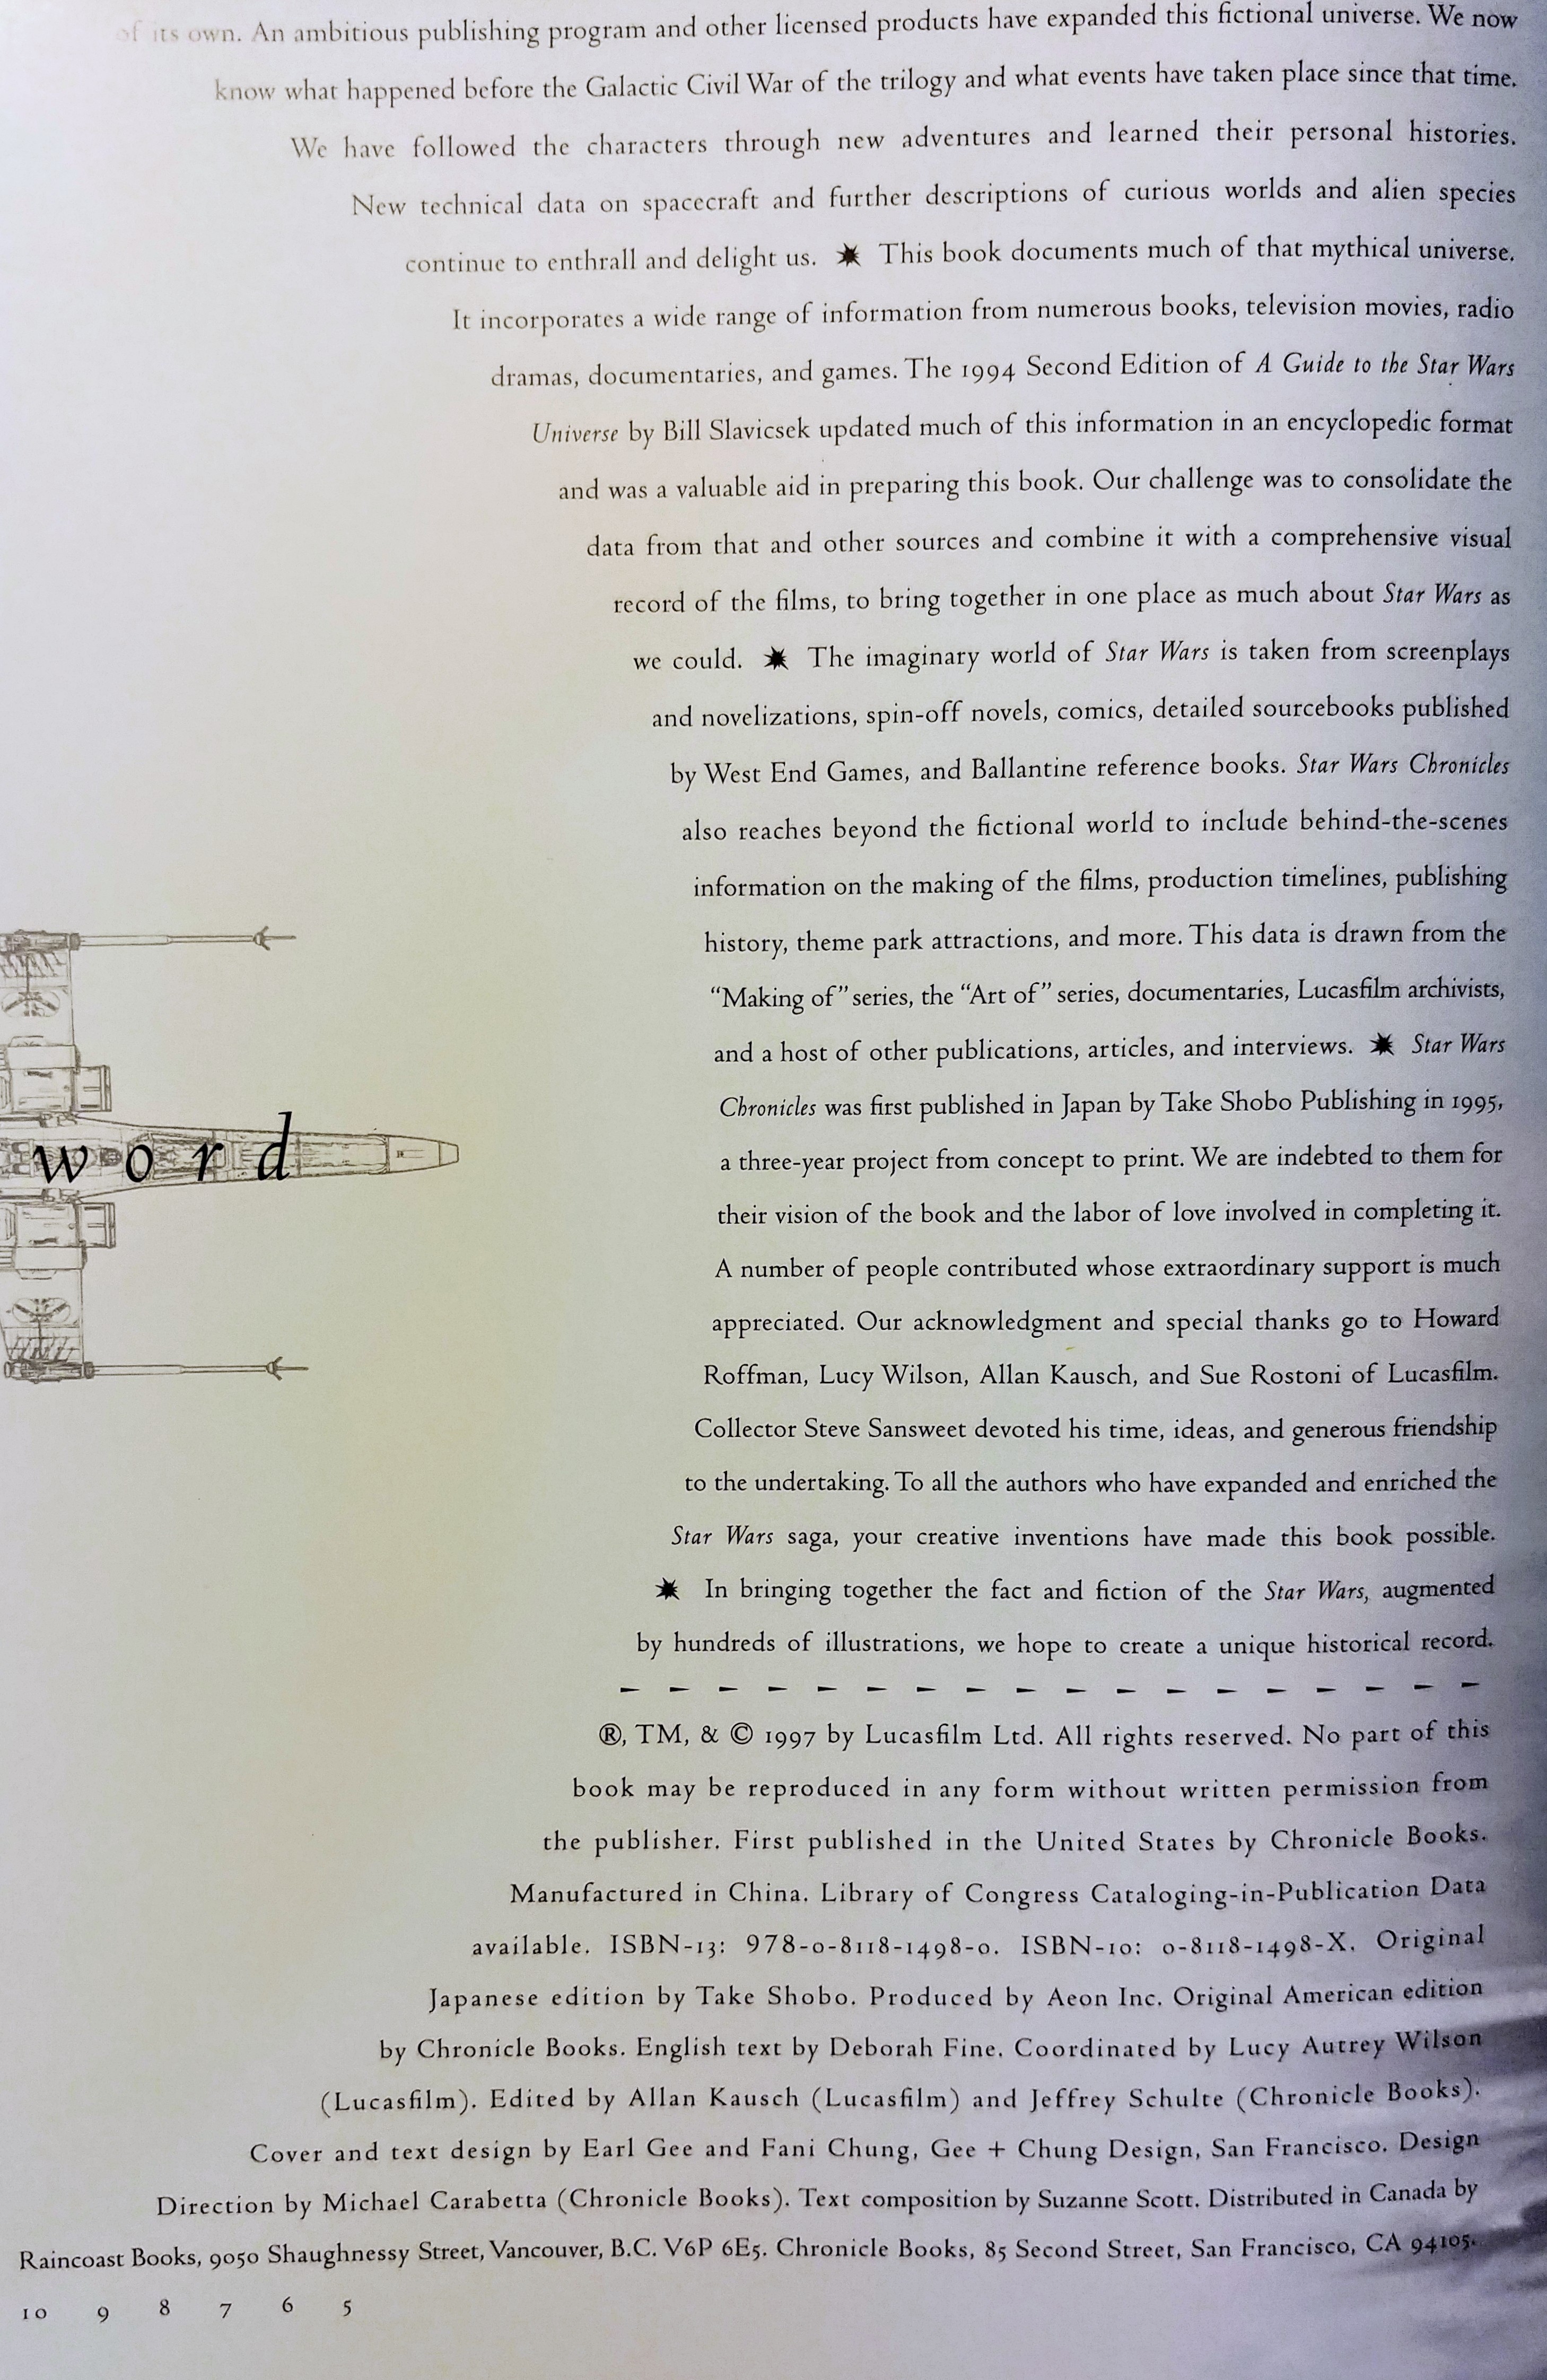 of its own. An ambitious publishing program and other licensed products have expanded this fictional universe. We now
know what happened before the Galactic Civil War of the trilogy and what events have taken place since that time.
We have followed the characters through new adventures and learned their personal histories.
New technical data on spacecraft and further descriptions of curious worlds and alien species
continue to enthrall and delight us. ✷ This book documents much of that mythical universe.
It incorporates a wide range of information from numerous books, television movies, radio
dramas, documentaries, and games. The 1994 Second Edition of A Guide to the Star Wars
Universe by Bill Slavicsek updated much of this information in an encyclopedic format
and was a valuable aid in preparing this book. Our challenge was to consolidate the
data from that and other sources and combine it with a comprehensive visual
record of the films, to bring together in one place as much about Star Wars as
we could. ✷ The imaginary world of Star Wars is taken from screenplays
and novelizations, spin-off novels, comics, detailed sourcebooks published
by West End Games, and Ballantine reference books. Star Wars Chronicles
also reaches beyond the fictional world to include behind-the-scenes
information on the making of the films, production timelines, publishing
history, theme park attractions, and more. This data is drawn from the
“Making of” series, the “Art of” series, documentaries, Lucasfilm archivists,
and a host of other publications, articles, and interviews. ✷ Star Wars
Chronicles was first published in Japan by Take Shobo Publishing in 1995,
word
a three-year project from concept to print. We are indebted to them for
their vision of the book and the labor of love involved in completing it.
A number of people contributed whose extraordinary support is much
appreciated. Our acknowledgment and special thanks go to Howard
Roffman, Lucy Wilson, Allan Kausch, and Sue Rostoni of Lucasfilm.
Collector Steve Sansweet devoted his time, ideas, and generous friendship
to the undertaking. To all the authors who have expanded and enriched the
Star Wars saga, your creative inventions have made this book possible.
✷ In bringing together the fact and fiction of the Star Wars, augmented
by hundreds of illustrations, we hope to create a unique historical record.
®, TM, & © 1997 by Lucasfilm Ltd. All rights reserved. No part of this
book may be reproduced in any form without written permission from
the publisher. First published in the United States by Chronicle Books.
Manufactured in China. Library of Congress Cataloging-in-Publication Data
available. ISBN-13: 978-0-8118-1498-0. ISBN-10: 0-8118-1498-X. Original
Japanese edition by Take Shobo. Produced by Aeon Inc. Original American edition
by Chronicle Books. English text by Deborah Fine. Coordinated by Lucy Autrey Wilson
(Lucasfilm). Edited by Allan Kausch (Lucasfilm) and Jeffrey Schulte (Chronicle Books).
Cover and text design by Earl Gee and Fani Chung, Gee + Chung Design, San Francisco. Design
Direction by Michael Carabetta (Chronicle Books). Text composition by Suzanne Scott. Distributed in Canada by
Raincoast Books, 9050 Shaughnessy Street, Vancouver, B.C. V6P 6E5. Chronicle Books, 85 Second Street, San Francisco, CA 94105.
10 9 8 7 6 5